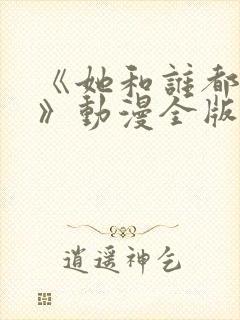 《她和誰都
》動漫全版
逍遥神乞